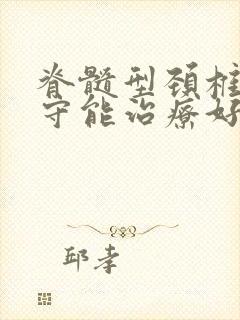 脊髓型颈椎
守能治疗好
邱孝